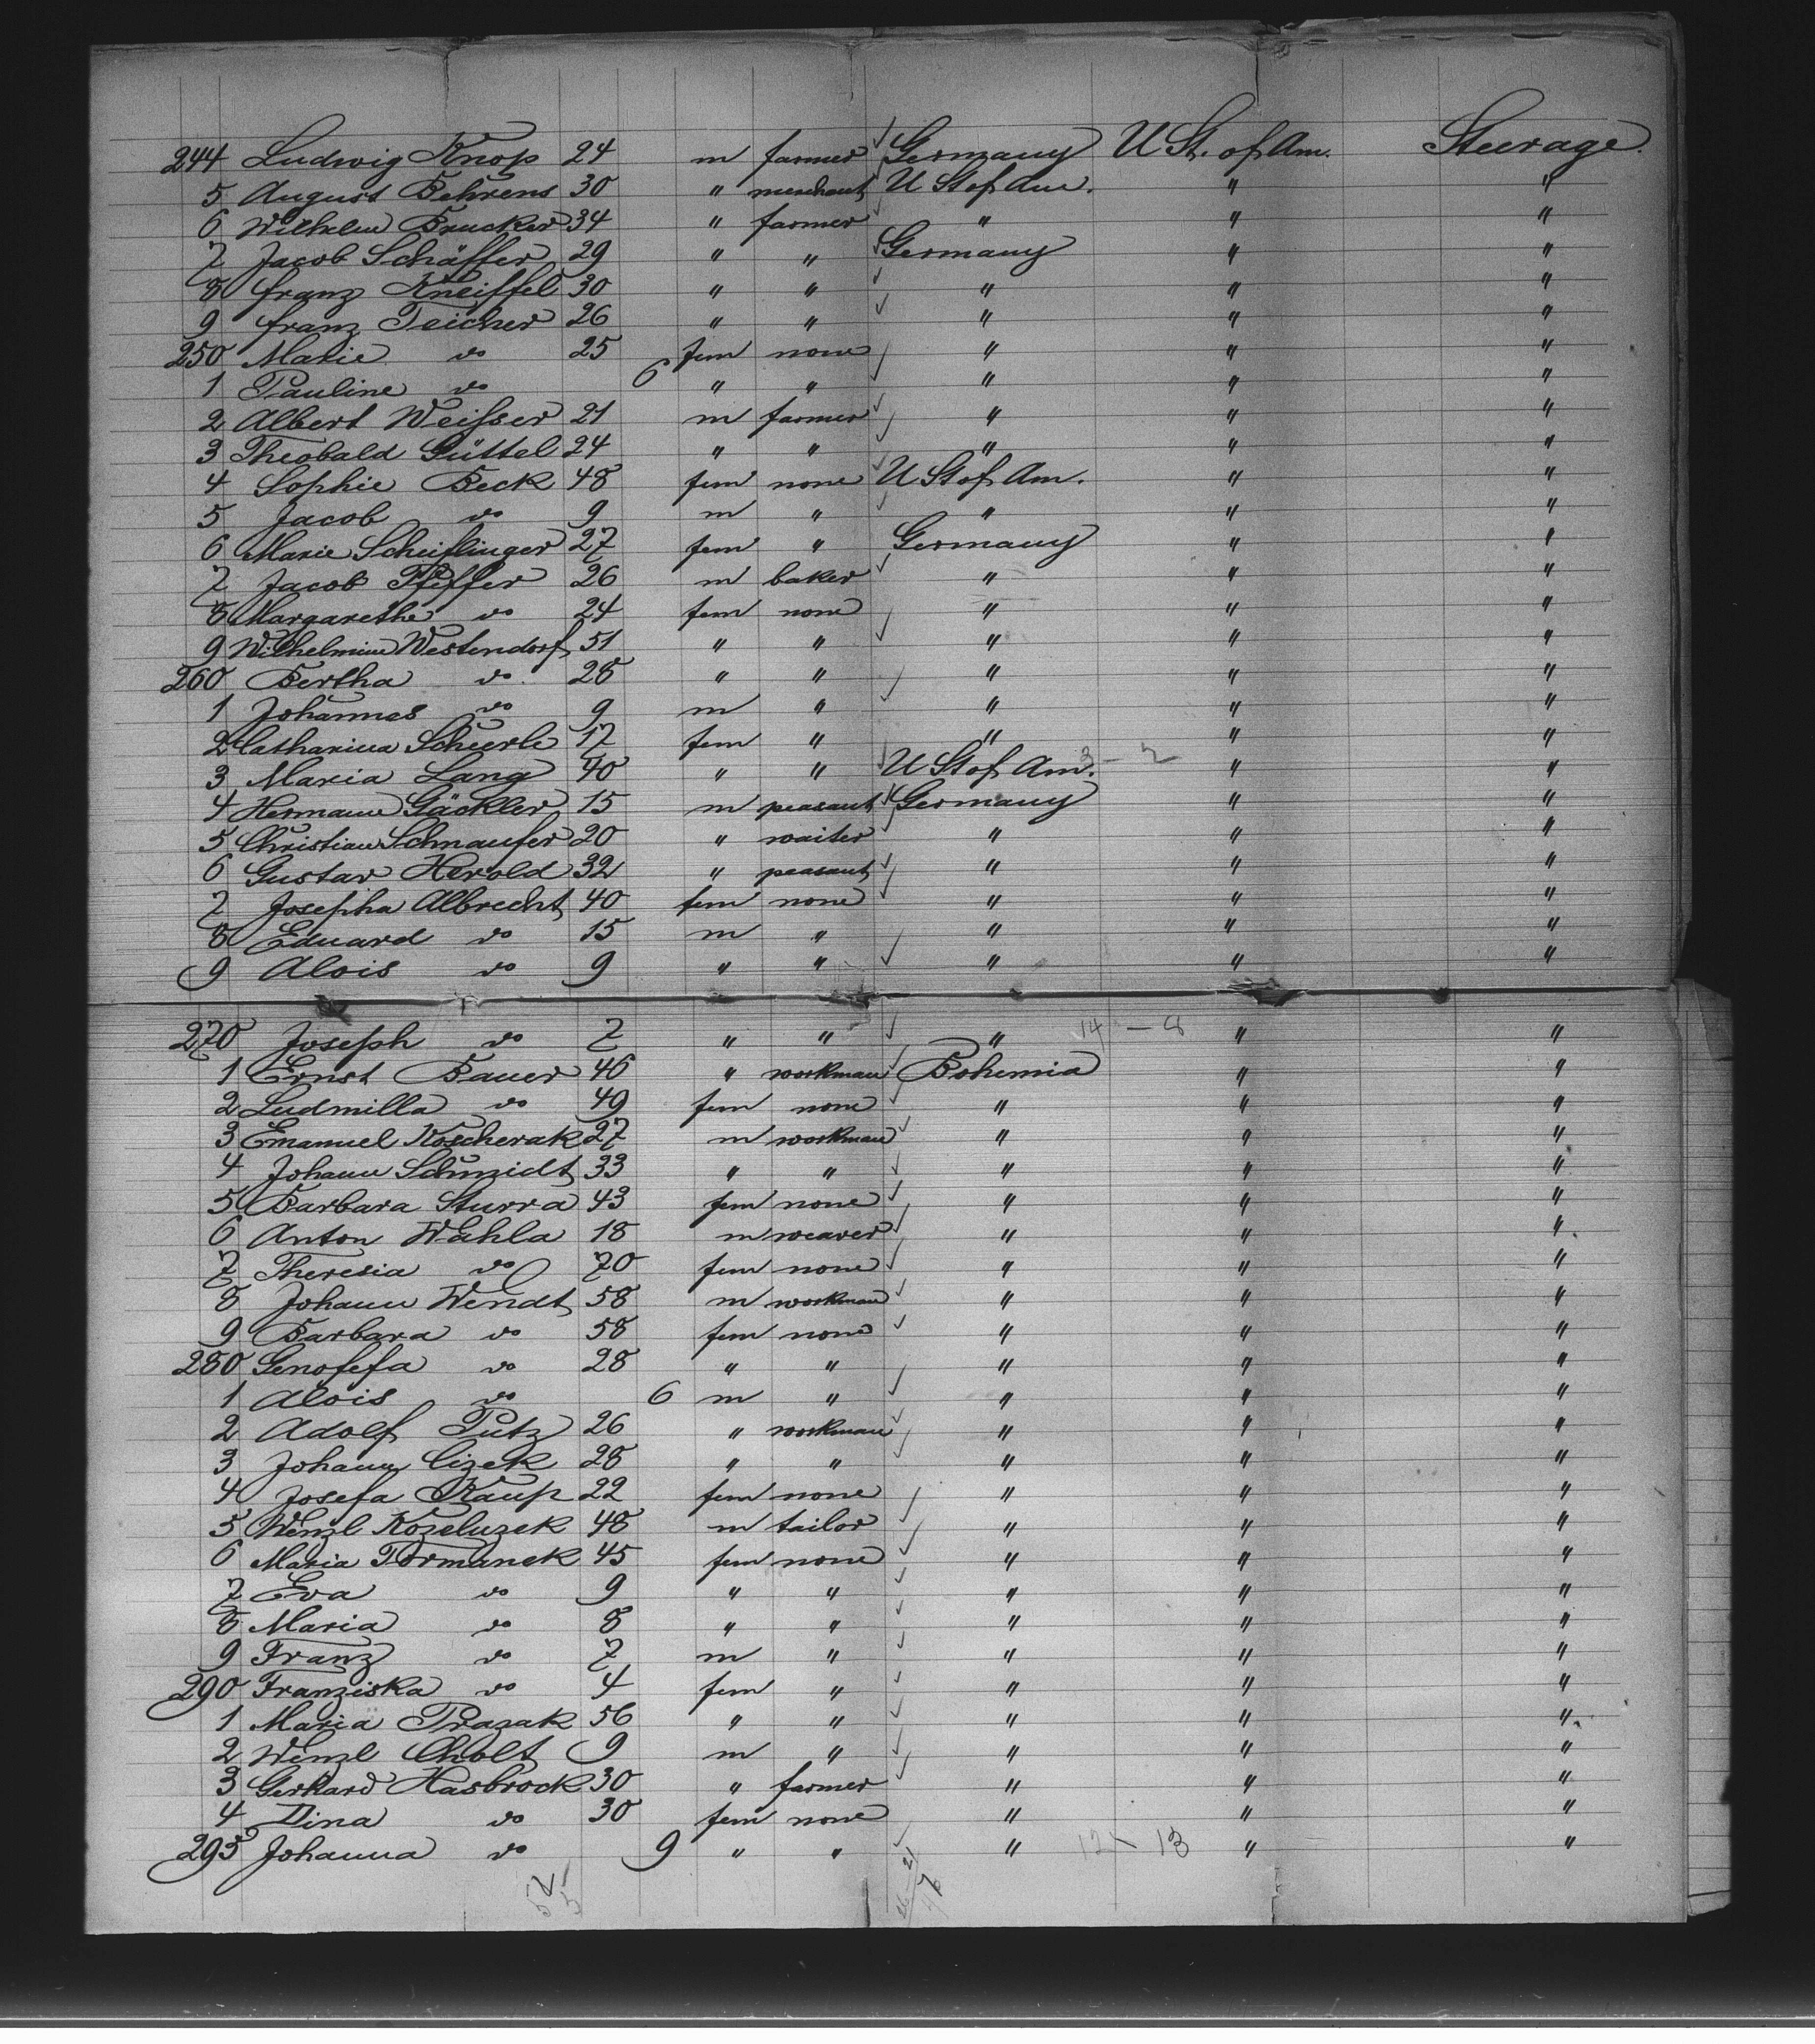 244 Ludwig Knop 24 m farmer Germany U St. of Am. Steerage.
5 August Behrens 30 " merchant U St of Am. " "
6 Wilhelm Brucker 34 " farmer " " "
7 Jacob Schäffer 29 " " Germany " "
8 Franz Kneiffel 30 " " " " "
9 Franz Teicher 26 " " " " "
250 Marie do 25 fem none " " "
1 Pauline do 6 " " " " "
2 Albert Weisser 21 m farmer " " "
3 Theobald Güttel 24 " " " " "
4 Sophie Beck 48 fem none U St of Am. " "
5 Jacob do 9 m " " " "
6 Marie Scheiflinger 27 fem " Germany " "
7 Jacob Pfeffer 26 m baker " " "
8 Margarethe do 24 fem none " " "
9 Wilhelmine Westendorf 51 " " " " "
260 Bertha do 28 " " " " "
1 Johannes do 9 m " " " "
2 Catharina Scheerle 17 fem " " " "
3 Maria Lang 40 " " U St of Am. 3 - 2 " "
4 Hermann Gäckler 15 m peasant Germany " "
5 Christian Schnaufer 20 " waiter " " "
6 Gustav Herold 32 " peasant " " "
7 Josepha Albrecht 40 fem none " " "
8 Eduard do 15 m " " " "
9 Alois do 9 " " " " "
270 Joseph do 7 " " " 14 - 8 " "
1 Ernst Bauer 46 " workman Bohemia " "
2 Ludmilla do 49 fem none " " "
3 Emanuel Koscherak 27 m workman " " "
4 Johann Schmidt 33 " " " " "
5 Barbara Sturra 43 fem none " " "
6 Anton Wahla 18 m weaver " " "
7 Theresia do 70 fem none " " "
8 Johann Wendt 58 m workman " " "
9 Barbara do 58 fem none " " "
280 Genofefa do 28 " " " " "
1 Alois do 6 m " " " "
2 Adolf Putz 26 " workman " " "
3 Johann Cizek 28 " " " " "
4 Josefa Kaup 22 fem none " " "
5 Wenzl Kozeluzek 48 m tailor " " "
6 Maria Formanek 45 fem none " " "
7 Eva do 9 " " " " "
8 Maria do 8 " " " " "
9 Franz do 7 m " " " "
290 Franziska do 4 fem " " " "
1 Maria Prazak 56 " " " " "
2 Wenzl Cholt 9 m " " " "
3 Gerhard Hasbrock 30 " farmer " " "
4 Dina do 30 fem none " " "
295 Johanna do 9 " " " 12 - 13 " "
52
5